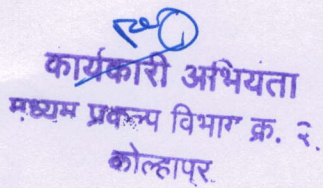 कार्यकारी अभियता
मध्यम प्रकल्प विभाग क्र. २.
कोल्हापर